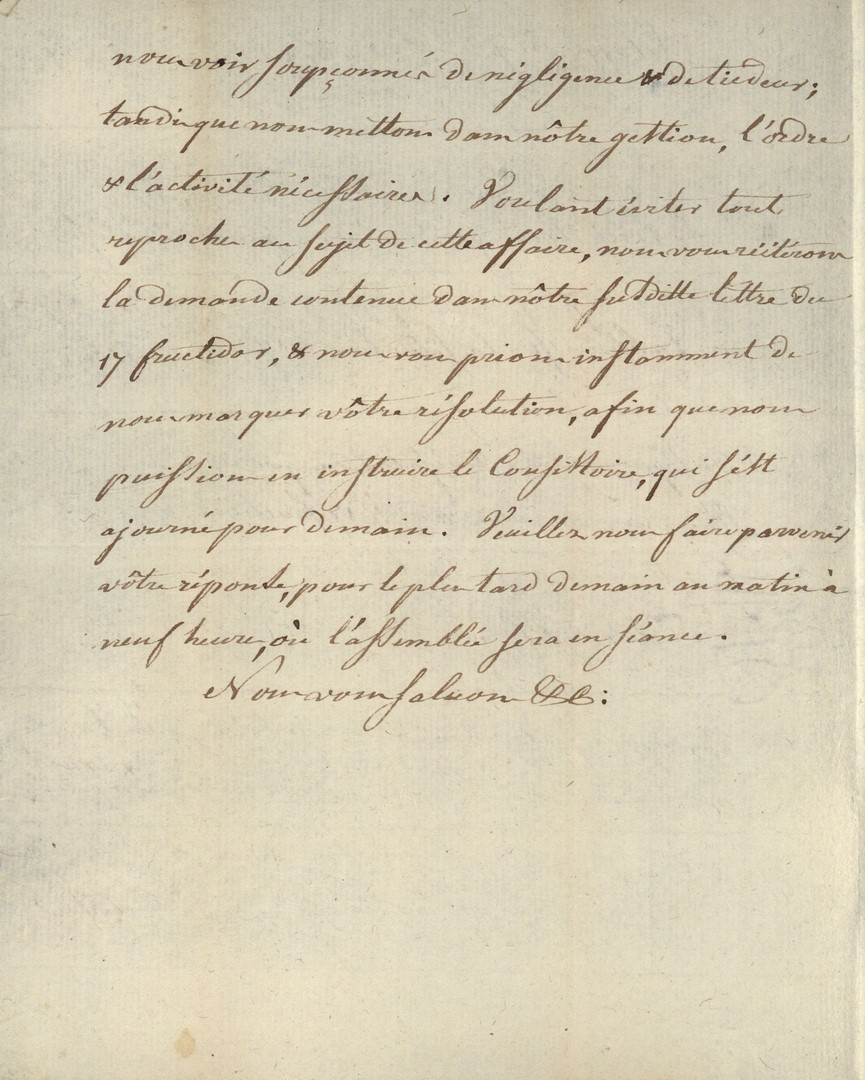 nous voir soupçonnés de négligence & de tiedeur;
tandis que nous mettons dans nôtre gestion, l'ordre
& l'activité nécessaires. Voulant éviter tout
reproche au sujet de cette affaire, nous vous réitérons
la demande contenue dans nôtre susditte lettre du
17 fructidor, & nous vous prions instamment de
nous marquer vôtre résolution, afin que nous
puissions en instruire le Consistoire, qui s'ést
ajourné pour demain. Veuillez nous faire parvenir
vôtre réponse, pour le plus tard demain au matin à
neuf heures, où l'assemblée sera en séance.
Nous vous saluons &c: